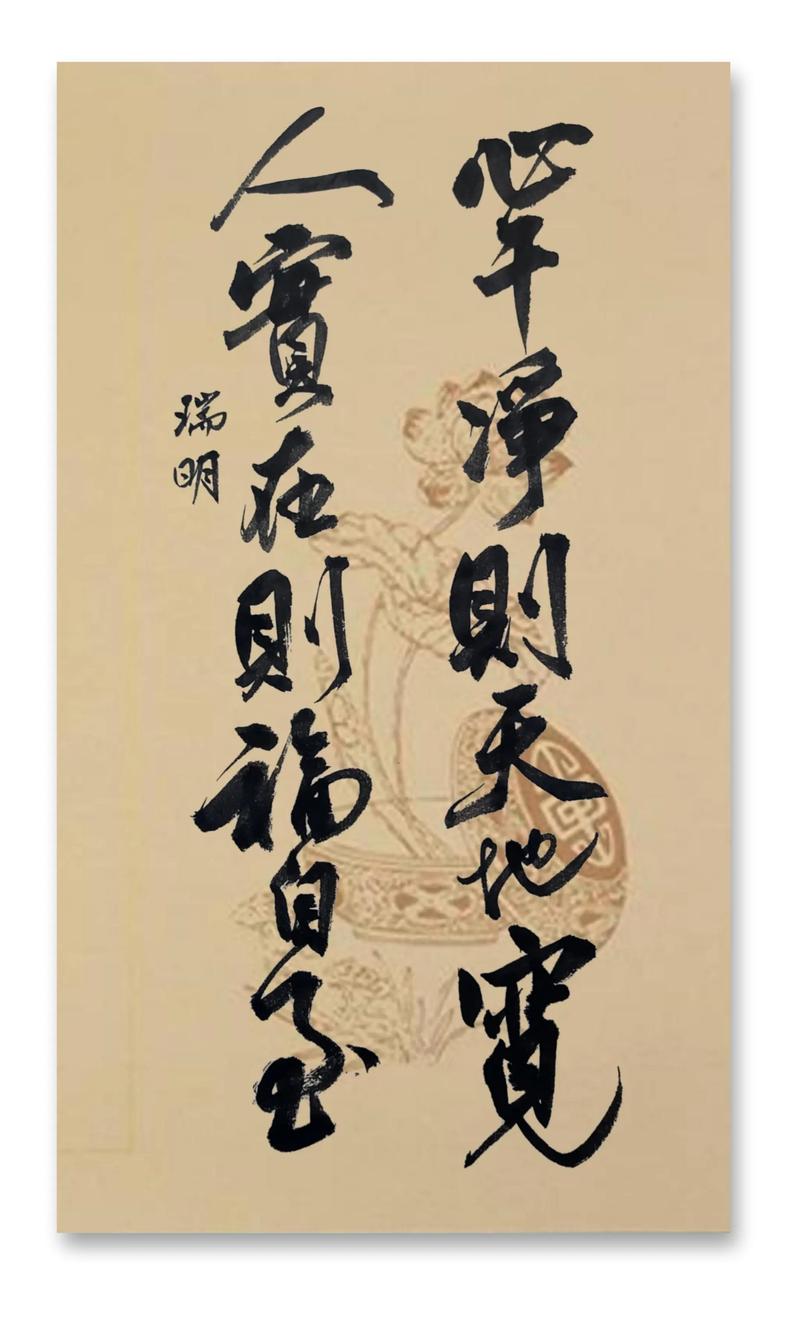 心干淨則天地寬
人實在則福自至
瑞明